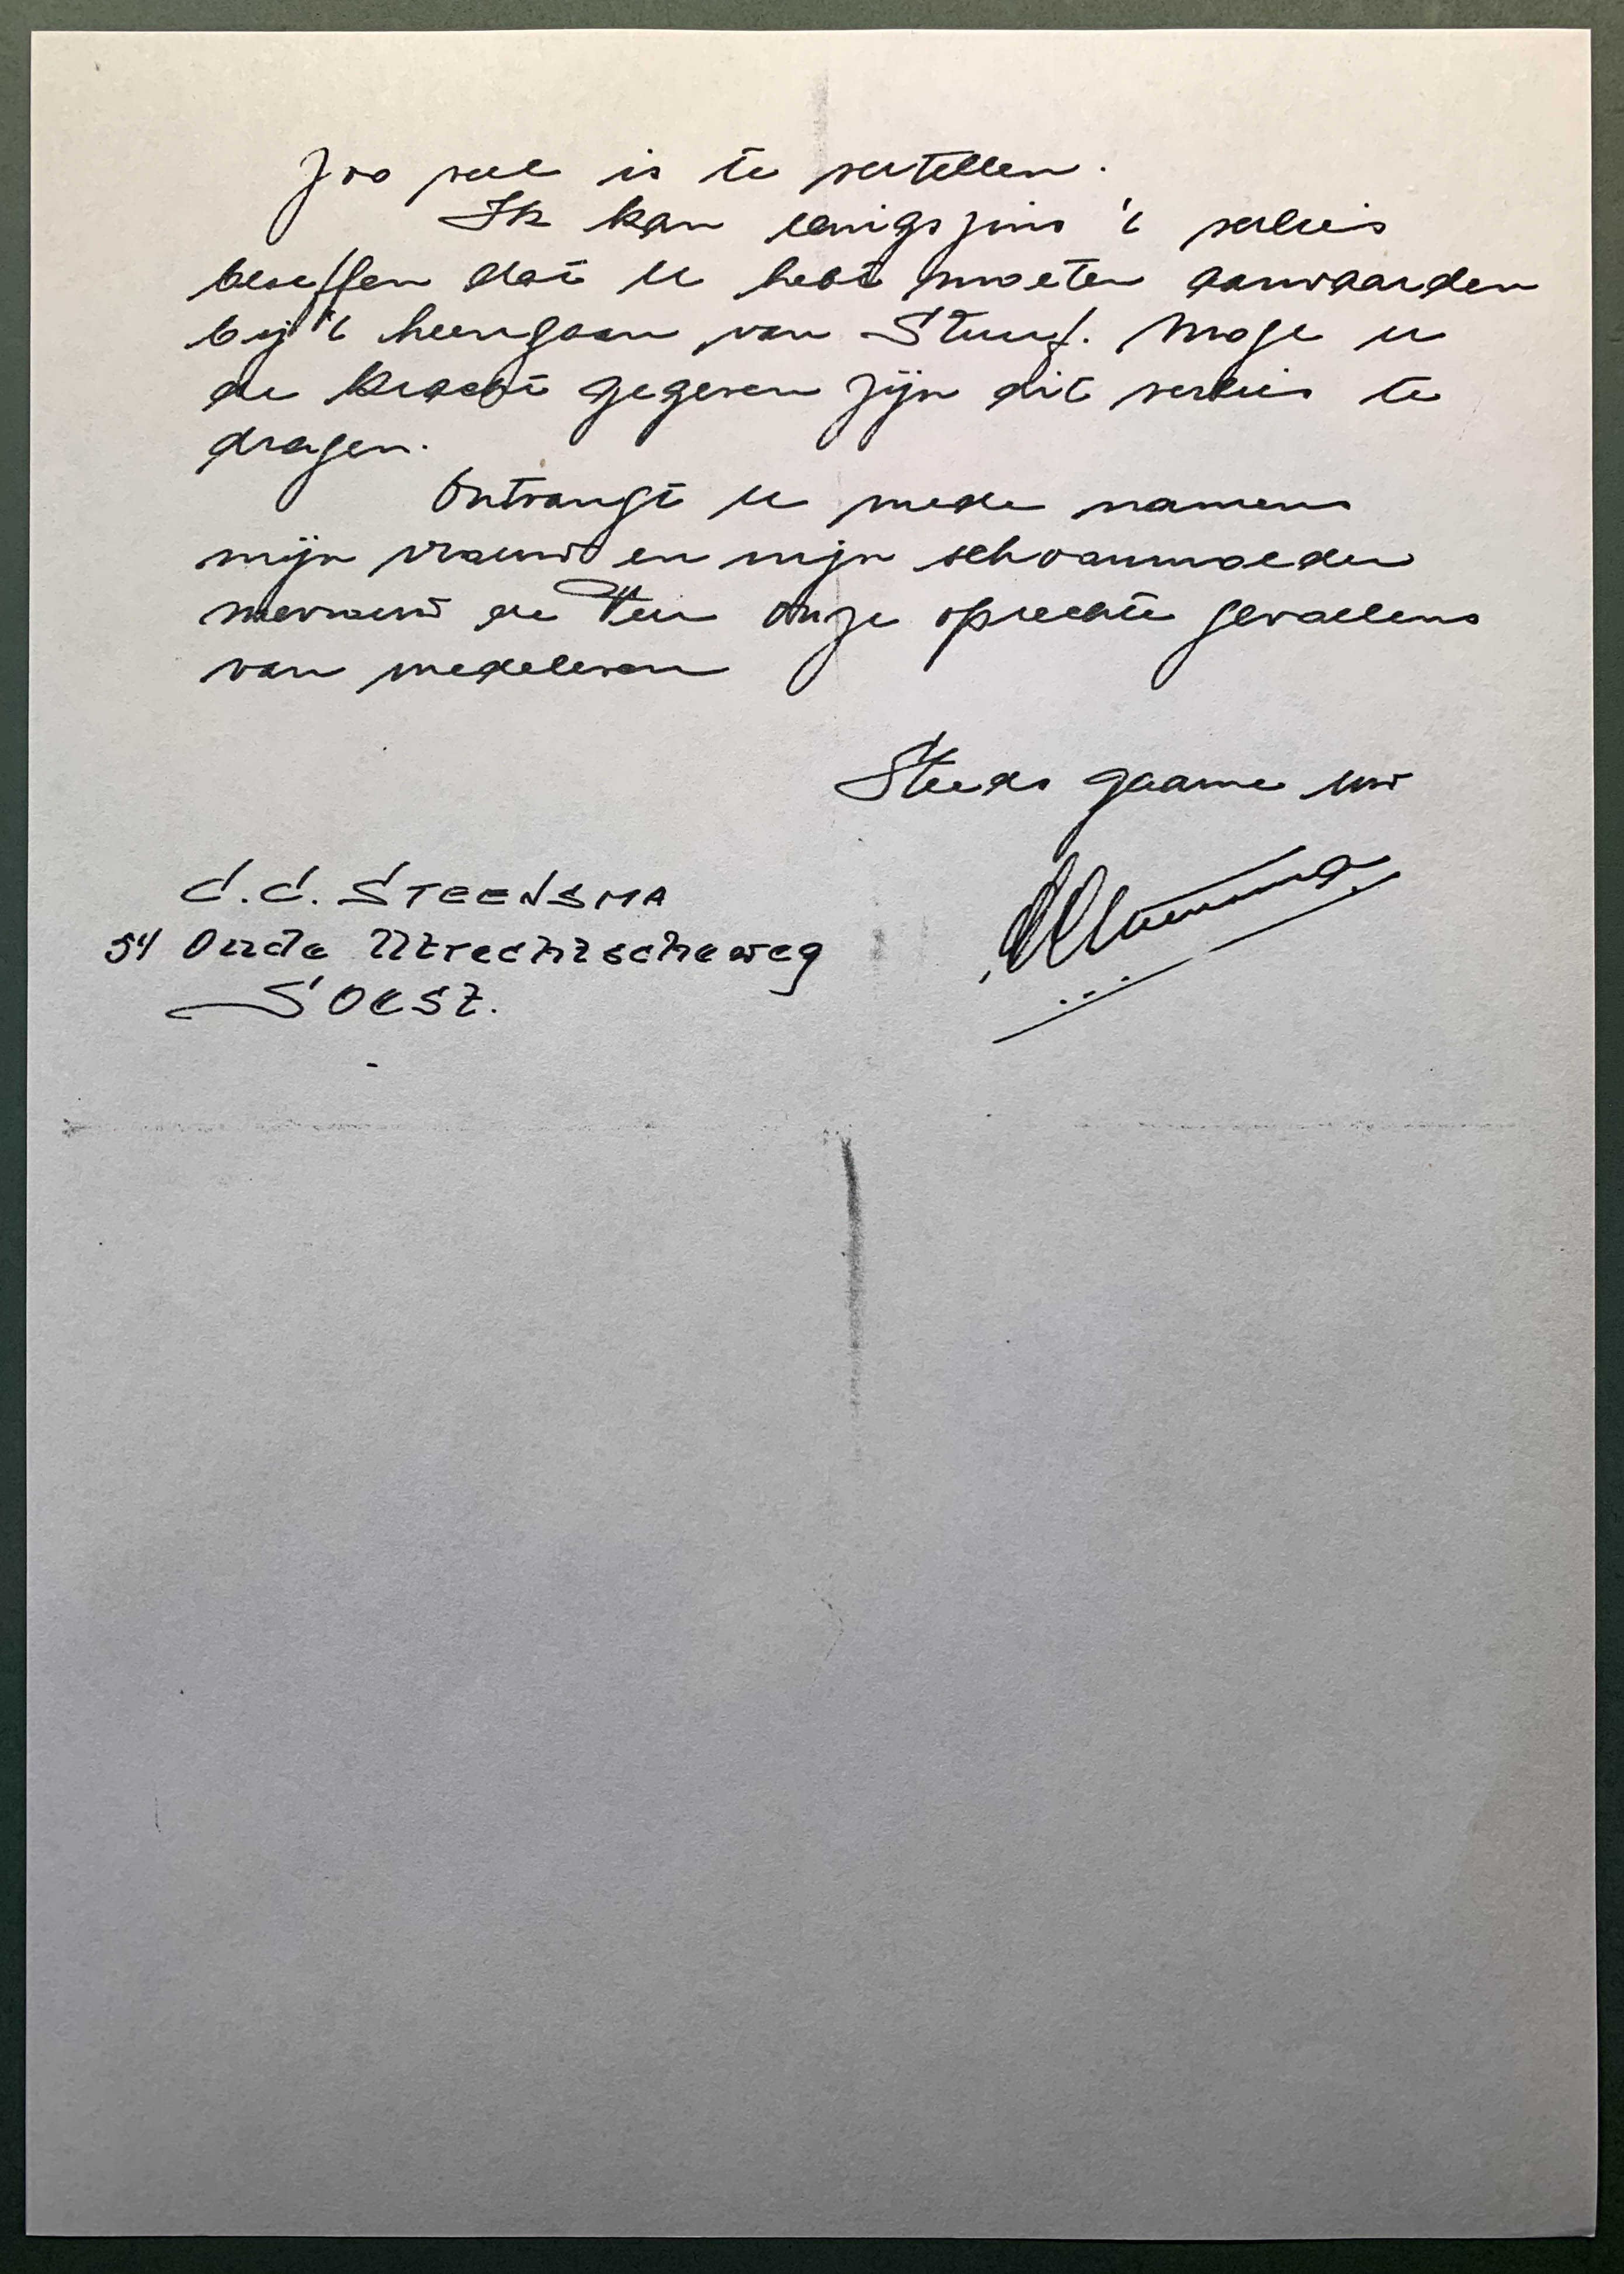 zoo veel is te vertellen.
Ik kan eenigszins 't verlies
beseffen dat U hebt moeten aanvaarden
bij 't heengaan van Stuuf. Moge U
de kracht gegeven zijn dit verlies te
dragen.
Ontvangt U mede namens
mijn vrouw en mijn schoonmoeder
mevrouw de Veer onze oprechte gevoelens
van medeleven
Steeds gaarne uw
C.C. STEENSMA
54 Oude Utrechtscheweg
SOEST.